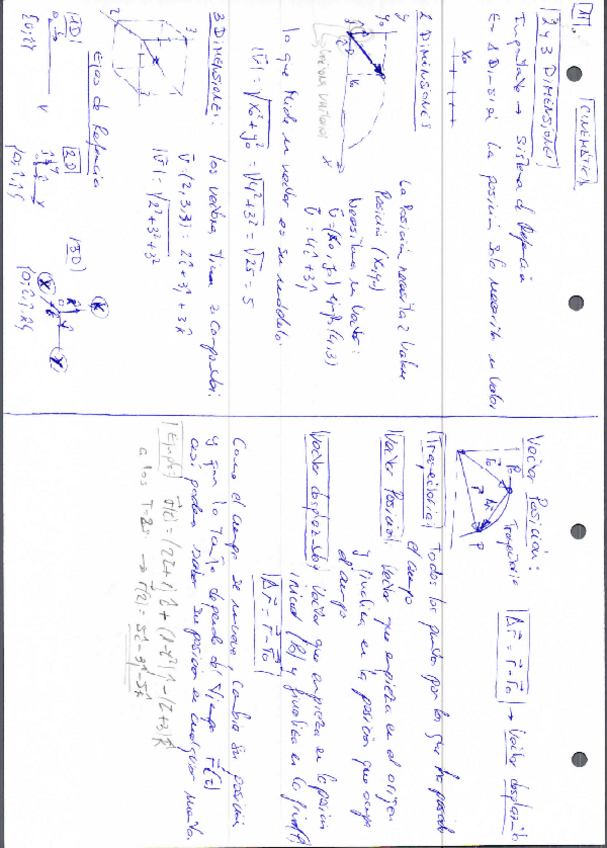 CINEMÁTICA
2 y 3 DIMENSIONES
Importante → Sistema de Referencia
En 1 Dimensión la posición solo necesita un valor
X₀
2 DIMENSIONES
La Posición necesita 2 valores
Posición (X₀, y₀)
Necesitamos un vector:
v̄ = (X₀, y₀) (4,3)
v̄ = 4î + 3ĵ
y
y₀
X₀
X
lo que Mide un vector es su módulo:
|v̄| = √X₀² + y₀² = √4² + 3² = √25 = 5
3 Dimensiones: los vectores tienen 3 componentes:
v̄ (2,3,3) = 2î + 3ĵ + 3k̂
|v̄| = √2² + 3² + 3²
Ejes de Referencia
1D
2D
3D
Vector Posición:
Trayectoria
P₀
P
Δr̄ = r̄ - r̄₀ → Vector desplazamiento
Trayectoria todos los puntos por los que ha pasado
el cuerpo
Vector Posición Vector que empieza en el origen
y finaliza en la posición que ocupa
el cuerpo
Vector desplazamiento Vector que empieza en la posición
inicial (P₀) y finaliza en la final (P)
Δr̄ = r̄ - r̄₀
Como el cuerpo se mueve y cambia su posición
y que lo tanto depende del tiempo r̄(t)
así podemos saber su posición en cualquier momento.
Ejemplo r̄(t) = (2t+1)î + (1-t²)ĵ - (t+3)k̂
a los T=2 → r̄(2) = 5î - 3ĵ - 5k̂